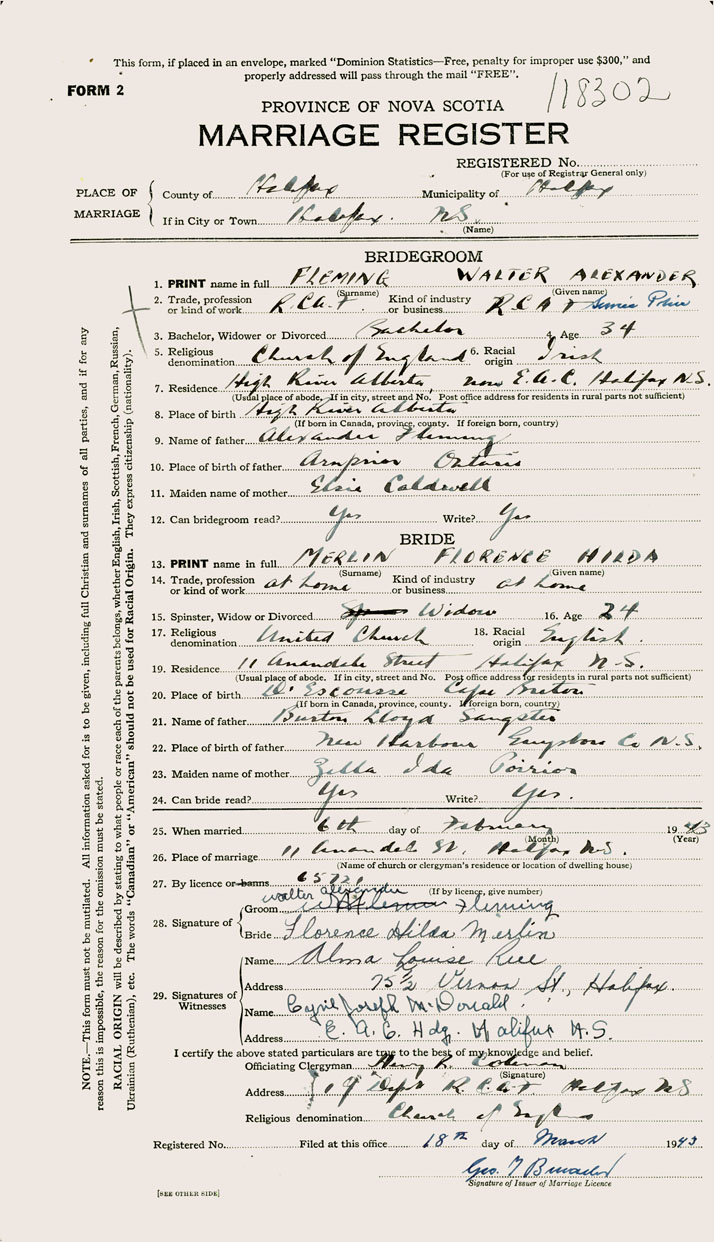 This form, if placed in an envelope, marked "Dominion Statistics—Free, penalty for improper use $300," and
properly addressed will pass through the mail "FREE".
FORM 2
118302
PROVINCE OF NOVA SCOTIA
MARRIAGE REGISTER
REGISTERED No.
(For use of Registrar General only)
PLACE OF MARRIAGE
County of Halifax Municipality of Halifax
If in City or Town Halifax. N.S.
(Name)
BRIDEGROOM
1. PRINT name in full FLEMING WALTER ALEXANDER
(Surname) (Given name)
2. Trade, profession or kind of work R.C.A.F. Kind of industry or business R C A F Service Police
3. Bachelor, Widower or Divorced Bachelor 4. Age 34
5. Religious denomination Church of England 6. Racial origin Irish
7. Residence High River Alberta, now E.A.C. Halifax N.S.
(Usual place of abode. If in city, street and No. Post office address for residents in rural parts not sufficient)
8. Place of birth High River Alberta
(If born in Canada, province, county. If foreign born, country)
9. Name of father Alexander Fleming
10. Place of birth of father Arnprior Ontario
11. Maiden name of mother Elsie Caldwell
12. Can bridegroom read? Yes Write? Yes
BRIDE
13. PRINT name in full MERLIN FLORENCE HILDA
(Surname) (Given name)
14. Trade, profession or kind of work at home Kind of industry or business at home
15. Spinster, Widow or Divorced Widow 16. Age 24
17. Religious denomination United Church 18. Racial origin English.
19. Residence 11 Anandale Street Halifax N.S.
(Usual place of abode. If in city, street and No. Post office address for residents in rural parts not sufficient)
20. Place of birth D'Escousse Cape Breton
(If born in Canada, province, county. If foreign born, country)
21. Name of father Burton Lloyd Sangster
22. Place of birth of father New Harbour Guysboro Co N.S.
23. Maiden name of mother Zella Ida Poirior
24. Can bride read? Yes Write? Yes.
25. When married 6th day of February 1943
(Month) (Year)
26. Place of marriage 11 Anandale St. Halifax N.S.
(Name of church or clergyman's residence or location of dwelling house)
27. By licence or banns 65721
(If by licence, give number)
walter alexander
28. Signature of Groom Fleming
Bride Florence Hilda Merlin
29. Signatures of Witnesses
Name Alma Louise Rice
Address 75½ Vernon St., Halifax.
Name Cyril Joseph McDonald.
Address E. A. C. Hdq. Halifax N.S.
I certify the above stated particulars are true to the best of my knowledge and belief.
Officiating Clergyman
(Signature)
Address R.C.A.F. Halifax NS
Religious denomination Church of England
Registered No. Filed at this office 18th day of March 1943
Signature of Issuer of Marriage Licence
[SEE OTHER SIDE]
NOTE.—This form must not be mutilated. All information asked for is to be given, including full Christian and surnames of all parties, and if for any
reason this is impossible, the reason for the omission must be stated.
RACIAL ORIGIN will be described by stating to what people or race each of the parents belongs, whether English, Irish, Scottish, French, German, Russian,
Ukrainian (Ruthenian), etc. The words "Canadian" or "American" should not be used for Racial Origin. They express citizenship (nationality).